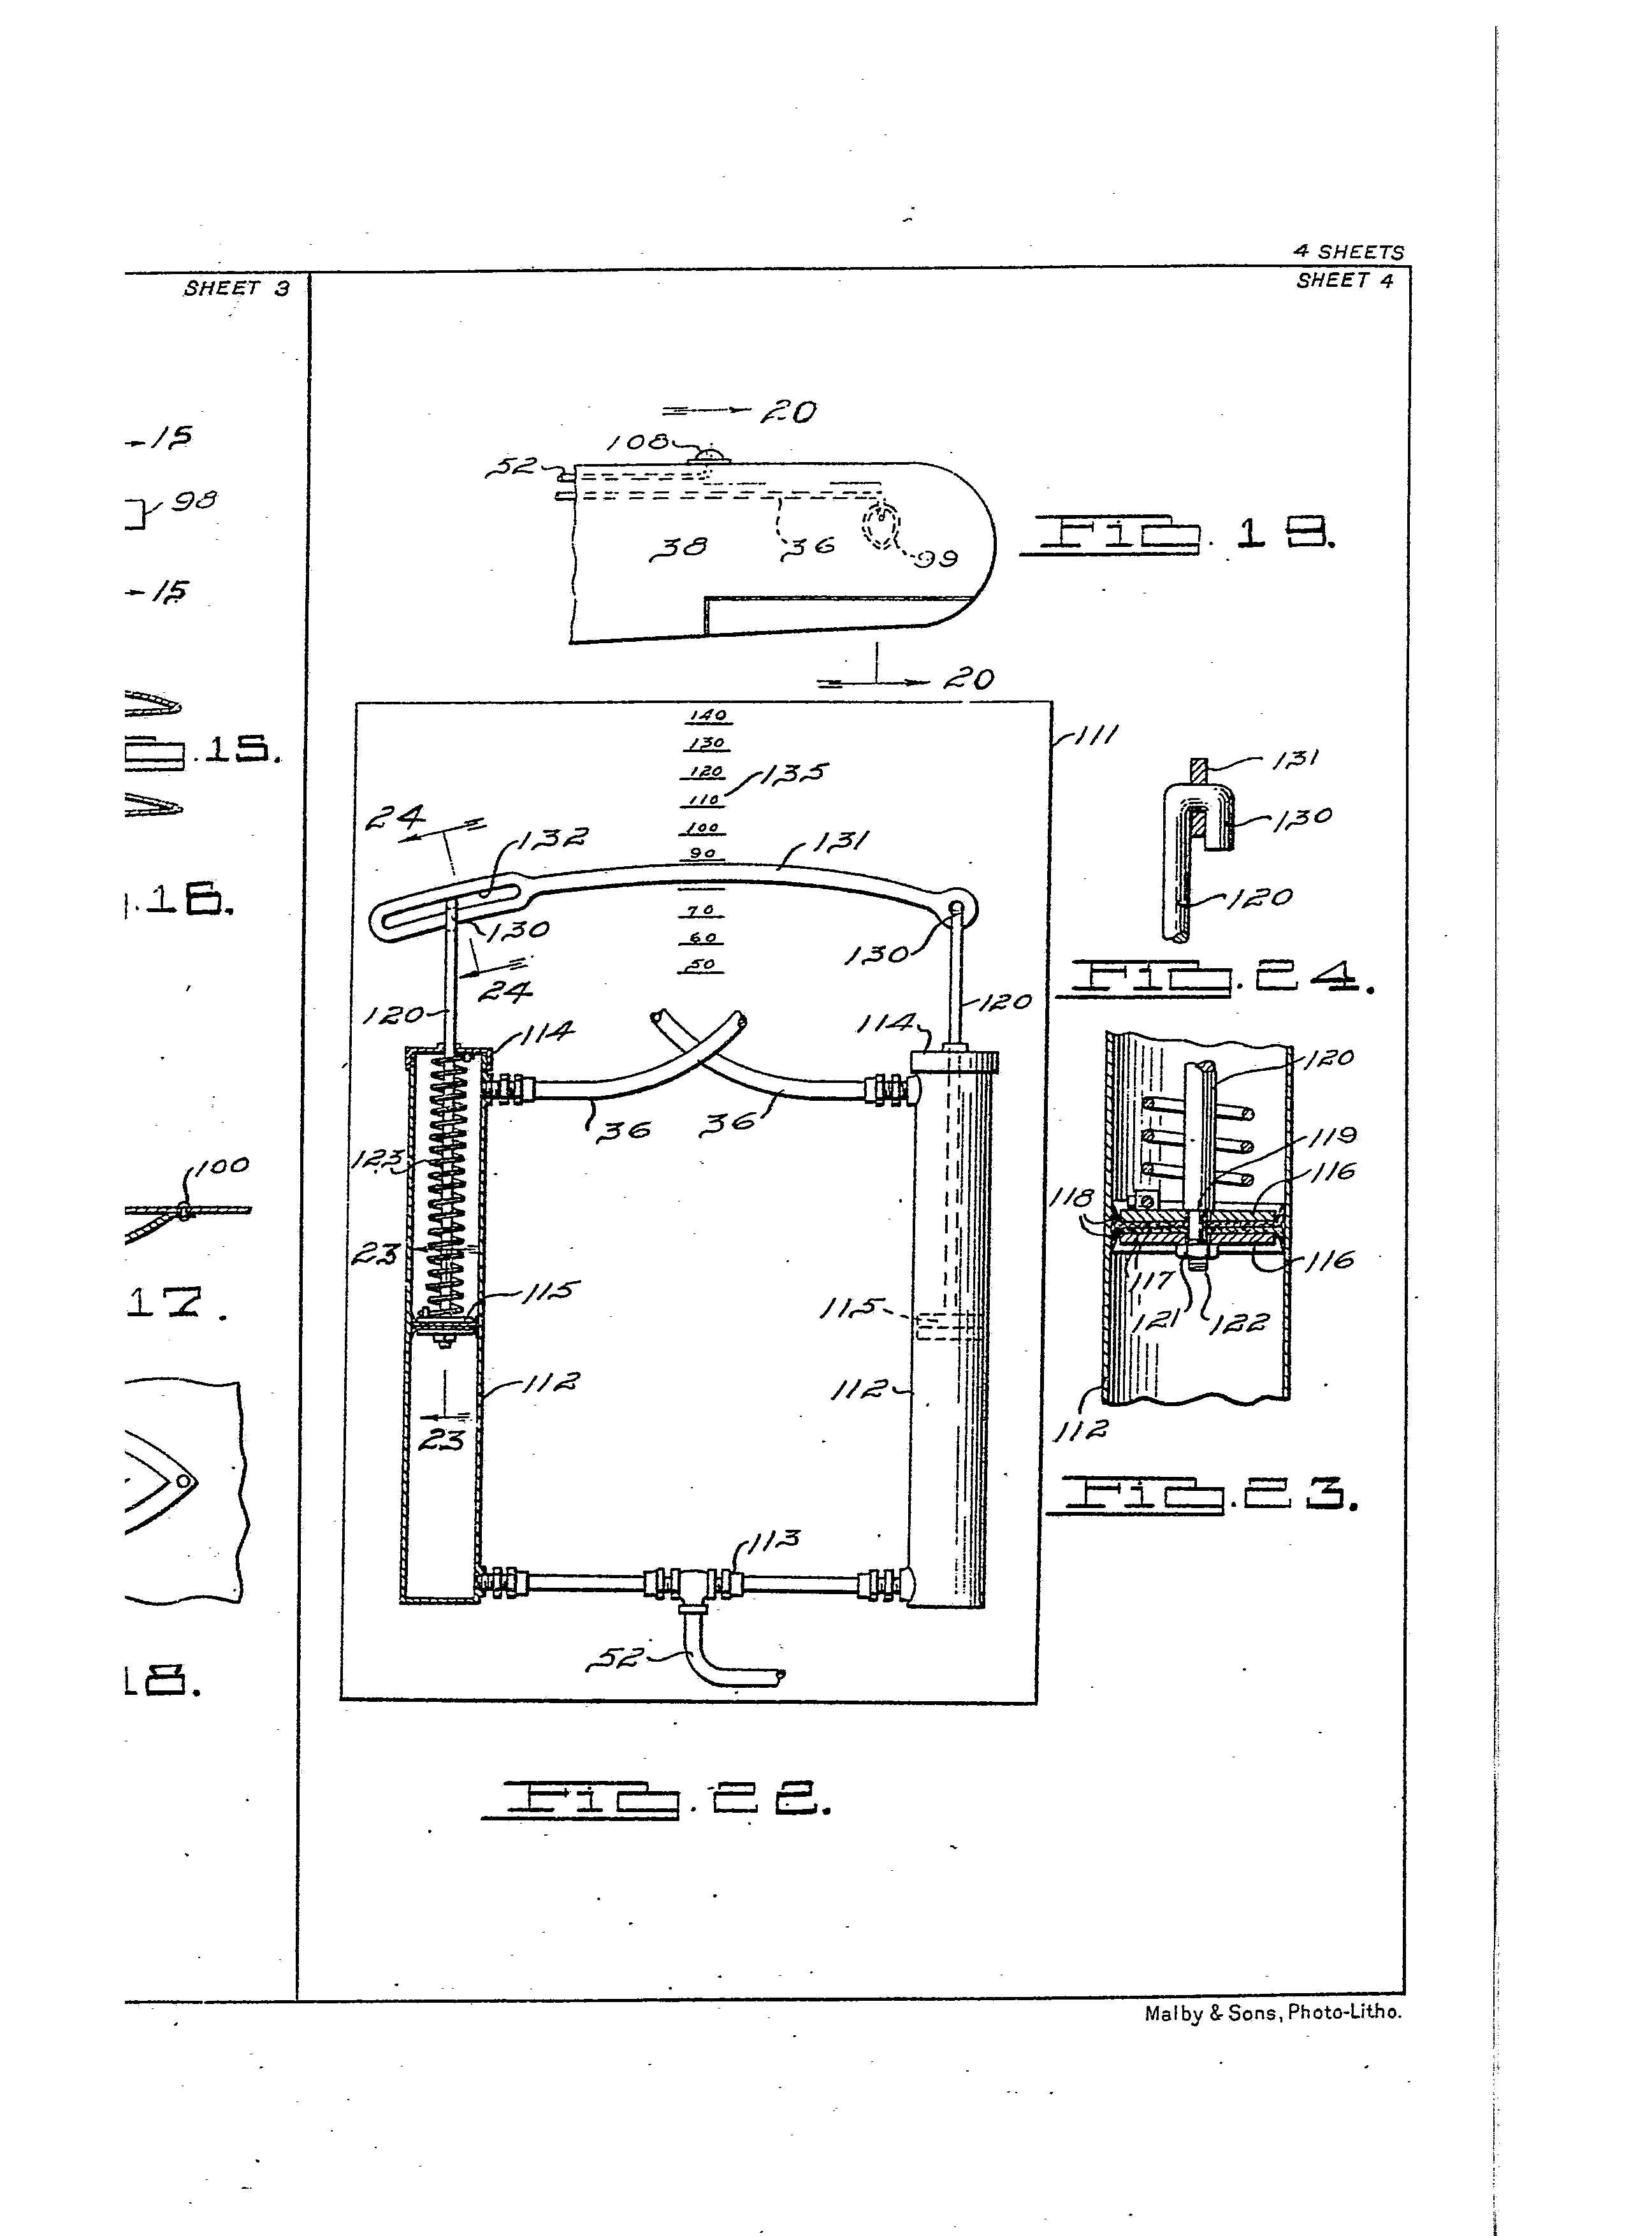 4 SHEETS
SHEET 3
SHEET 4
15
98
15
15.
16.
100
17.
18.
20
108
52
38
36
99
FIG. 19.
20
111
140
130
120
110
100
90
70
60
50
135
24
132
131
130
130
24
120
120
114
114
36
36
123
23
115
115
112
112
23
113
52
FIG. 22.
131
130
120
FIG. 24.
120
119
116
118
117
116
121
122
112
FIG. 23.
Malby & Sons, Photo-Litho.